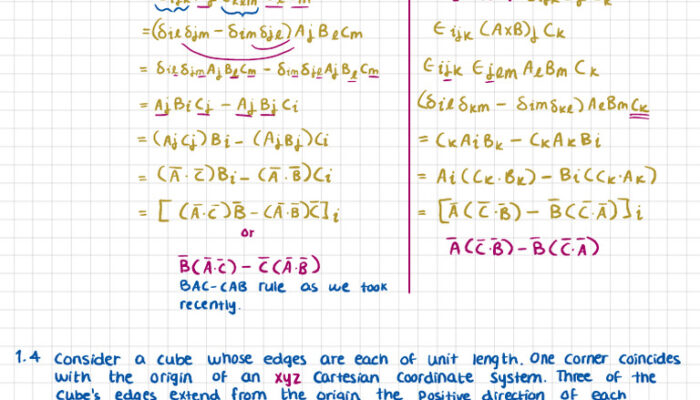 =(δil δjm − δim δjl) Aj Bl Cm
= δil δjm Aj Bl Cm − δim δjl Aj Bl Cm
= Aj Bi Cj − Aj Bj Ci
=(Aj Cj) Bi − (Aj Bj) Ci
= (A̅ · C̅) Bi − (A̅ · B̅) Ci
= [ (A̅·C̅) B̅ − (A̅·B̅) C̅ ]i
or
B̅(A̅·C̅) − C̅(A̅·B̅)
BAC-CAB rule as we took
recently.
Єijk (AxB)j Ck
Єijk Єjlm Al Bm Ck
(δil δkm − δim δkl) Al Bm Ck
= Ck Ai Bk − Ck Ak Bi
= Ai (Ck · Bk) − Bi (Ck · Ak)
= [A̅ (C̅·B̅) − B̅ (C̅·A̅)]i
A̅(C̅·B̅) − B̅(C̅·A̅)
1.4 Consider a cube whose edges are each of unit length. One corner coincides
with the origin of an xyz Cartesian Coordinate System. Three of the
Cube's edges extend from the origin the Positive direction of each